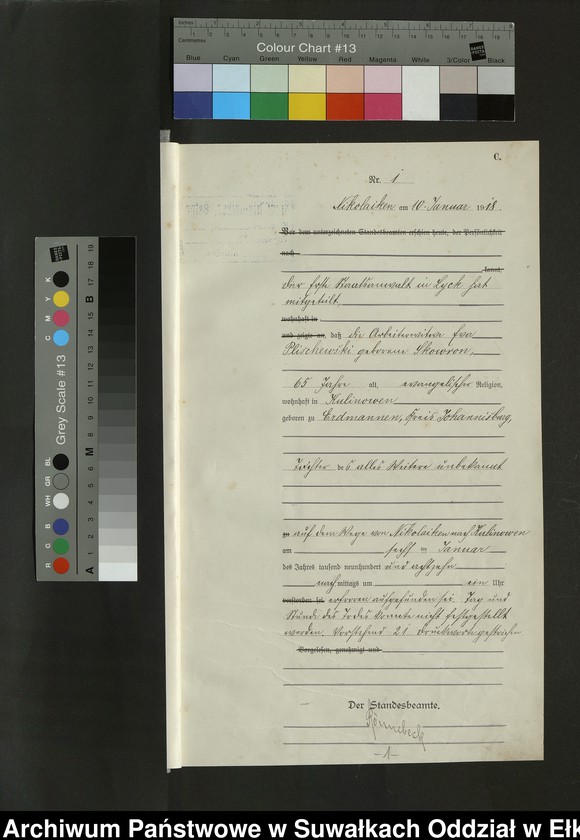 Inches
Centimetres
Colour Chart #13
Blue Cyan Green Yellow Red Magenta White 3/Color Black
Grey Scale #13
C.
Nr. 1
Nikolaiken am 10. Januar 1918.
Vor dem unterzeichneten Standesbeamten erschien heute, der Persönlichkeit
nach
kannt,
Der Erste Staatsanwalt in Lyck hat
mitgeteilt,
wohnhaft in
und zeigte an, daß die Arbeiterwitwe Eva
Plischewski geborene Skowron,
65 Jahre alt, evangelischer Religion,
wohnhaft in Kulinowen
geboren zu Erdmannen, Kreis Johannisburg,
Tochter des alles Weitere unbekannt
zu auf dem Wege von Nikolaiken nach Kulinowen
am sechs ten Januar
des Jahres tausend neunhundert und achtzehn
nach mittags um ein Uhr
verstorben sei. erfroren aufgefunden sei. Tag und
Stunde des Todes konnte nicht festgestellt
werden. Vorstehend 21 Druckworte gestrichen
Vorgelesen, genehmigt und
Der Standesbeamte.
Rönnebeck
-1-
Archiwum Państwowe w Suwałkach Oddział w Ełk